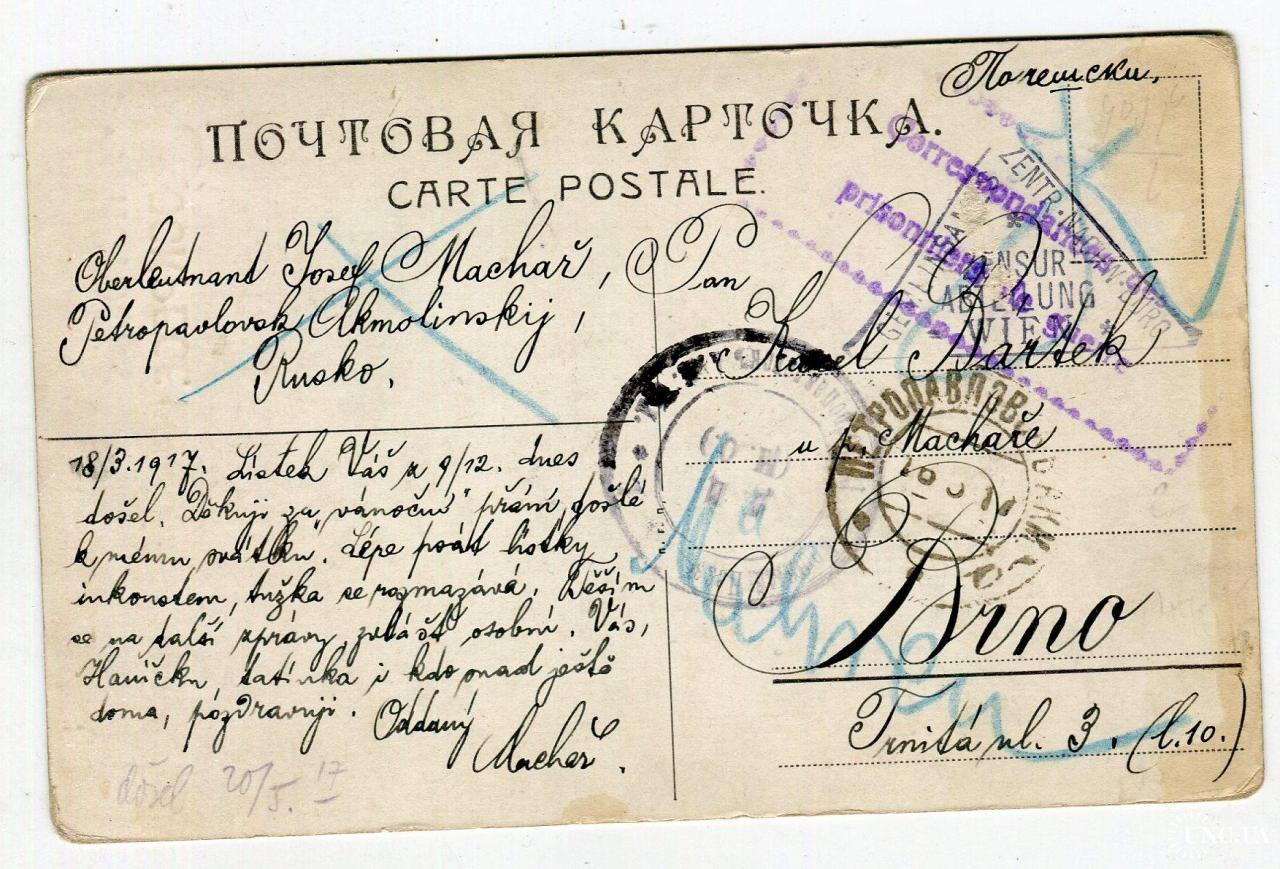 Почешски.
ПОЧТОВАЯ КАРТОЧКА.
CARTE POSTALE.
Correspondance
prisonniers de guerre
ZENSUR-
ABTEILUNG
WIEN
Oberleutnant Josef Machař,
Petropavlovsk Akmolinskij,
Rusko.
Pan
Karel Bartek
u p. Machaře
Brno
Trnitá ul. 3. (l.10.)
ПЕТРОПАВЛОВ
18/3.1917. Lístek Váš z 9/12. dnes
došel. Děkuji za „vánoční" přání, došlé
k mému svátku. Lépe psát lístky
inkoustem, tužka se rozmazává. Těším
se na další zprávy, zvlášť osobní. Vás,
Haničku, tatínka i kdo snad ještě
doma, pozdravuji. Oddaný
Machař.
došel 20/5. 17
UNC.UA